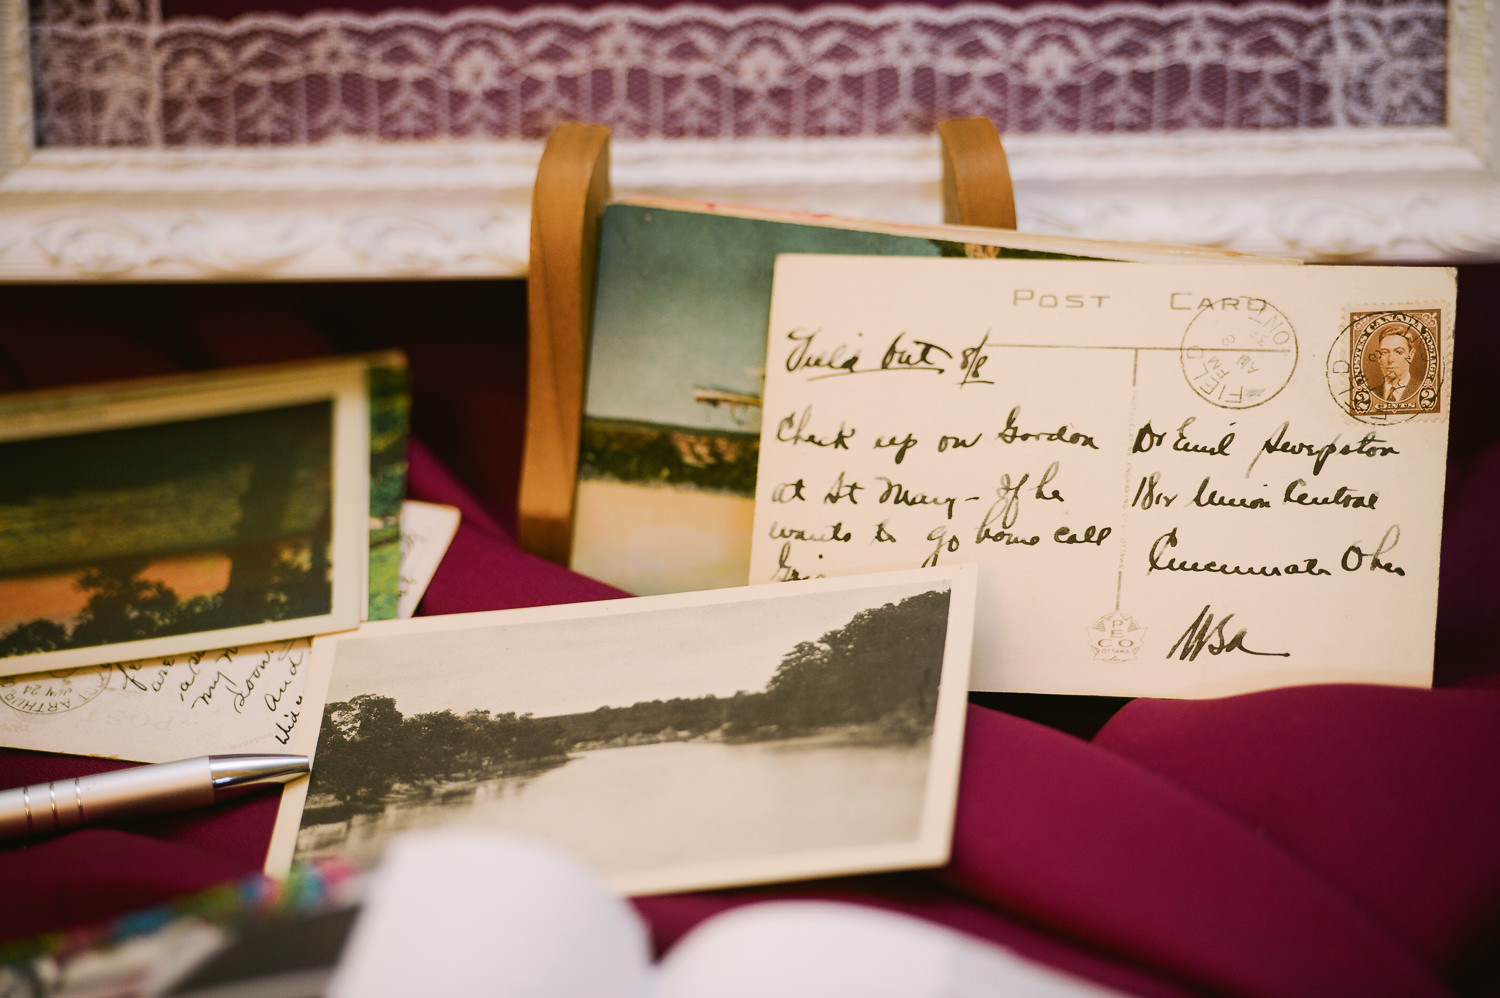 POST CARD
FIELD
ONT
PM
AU 8
38
POSTES CANADA POSTAGE
2 CENTS 2
Field Ont 8/8
Check up on Gordon
at St Mary - If he
wants to go home call
Dr Emil Swepston
1812 Union Central
Cincinnati Ohio
WBA
PECO
OTTAWA
ARTHUR
JUL 24
POST
are
my
soon.
And